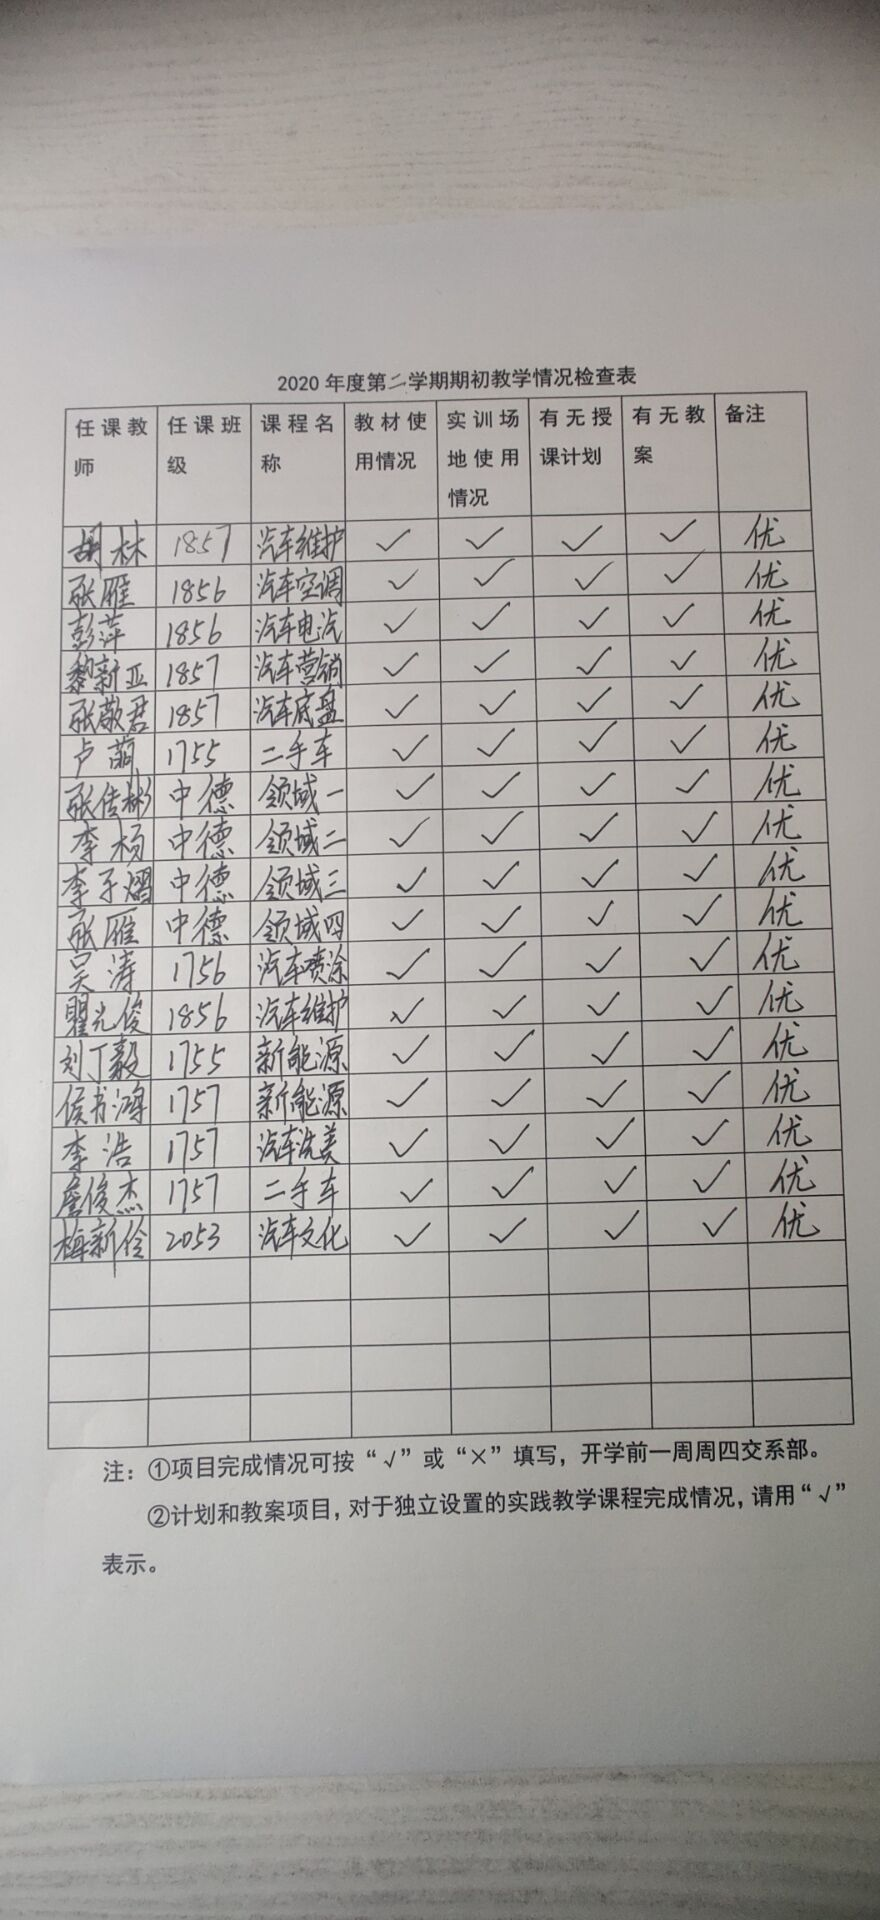 2020 年度第二学期期初教学情况检查表
任课教师 任课班级 课程名称 教材使用情况 实训场地使用情况 有无授课计划 有无教案 备注
胡林 1857 汽车维护 ✓ ✓ ✓ ✓ 优
张雁 1856 汽车空调 ✓ ✓ ✓ ✓ 优
彭萍 1856 汽车电汽 ✓ ✓ ✓ ✓ 优
黎新亚 1857 汽车营销 ✓ ✓ ✓ ✓ 优
张敬君 1857 汽车底盘 ✓ ✓ ✓ ✓ 优
卢萌 1755 二手车 ✓ ✓ ✓ ✓ 优
张传彬 中德 领域一 ✓ ✓ ✓ ✓ 优
李杨 中德 领域二 ✓ ✓ ✓ ✓ 优
李子熠 中德 领域三 ✓ ✓ ✓ ✓ 优
张雁 中德 领域四 ✓ ✓ ✓ ✓ 优
吴涛 1756 汽车喷涂 ✓ ✓ ✓ ✓ 优
瞿光俊 1856 汽车维护 ✓ ✓ ✓ ✓ 优
刘丁毅 1755 新能源 ✓ ✓ ✓ ✓ 优
侯书鸿 1757 新能源 ✓ ✓ ✓ ✓ 优
李浩 1757 汽车洗美 ✓ ✓ ✓ ✓ 优
詹俊杰 1757 二手车 ✓ ✓ ✓ ✓ 优
梅新伶 2053 汽车文化 ✓ ✓ ✓ ✓ 优
注：①项目完成情况可按“√”或“×”填写，开学前一周周四交系部。
②计划和教案项目，对于独立设置的实践教学课程完成情况，请用“√”
表示。